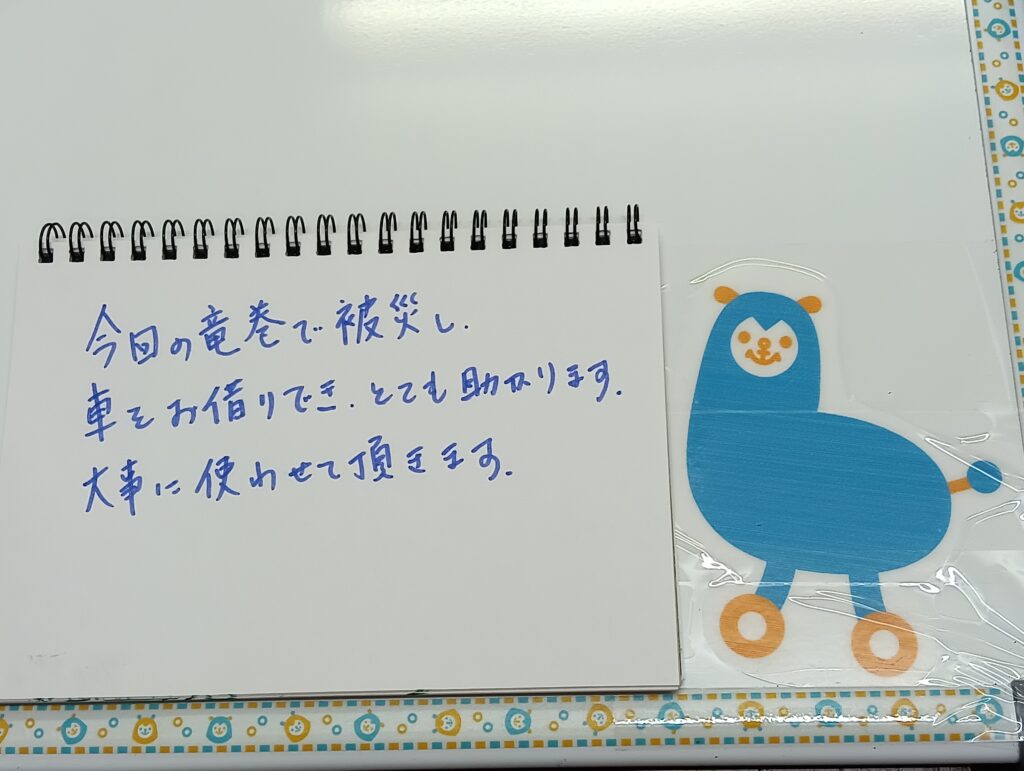 今回の竜巻で被災し.
車をお借りでき.とても助かります.
大事に使わせて頂きます.